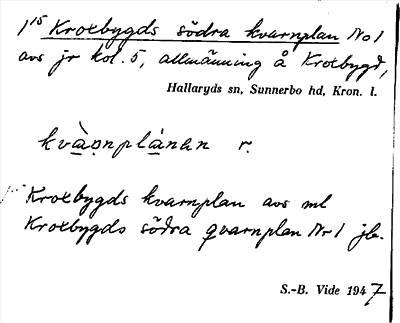 1¹⁵ Kroxbygds södra kvarnplan No 1
avs jr kol. 5, allmänning å Kroxbygd,
Hallaryds sn, Sunnerbo hd, Kron. l.
kvà̱ṇplá̱nan r.
Kroxbygds kvarnplan avs ml
Kroxbygds södra qvarnplan Nr 1 jb.
S.-B. Vide 1947